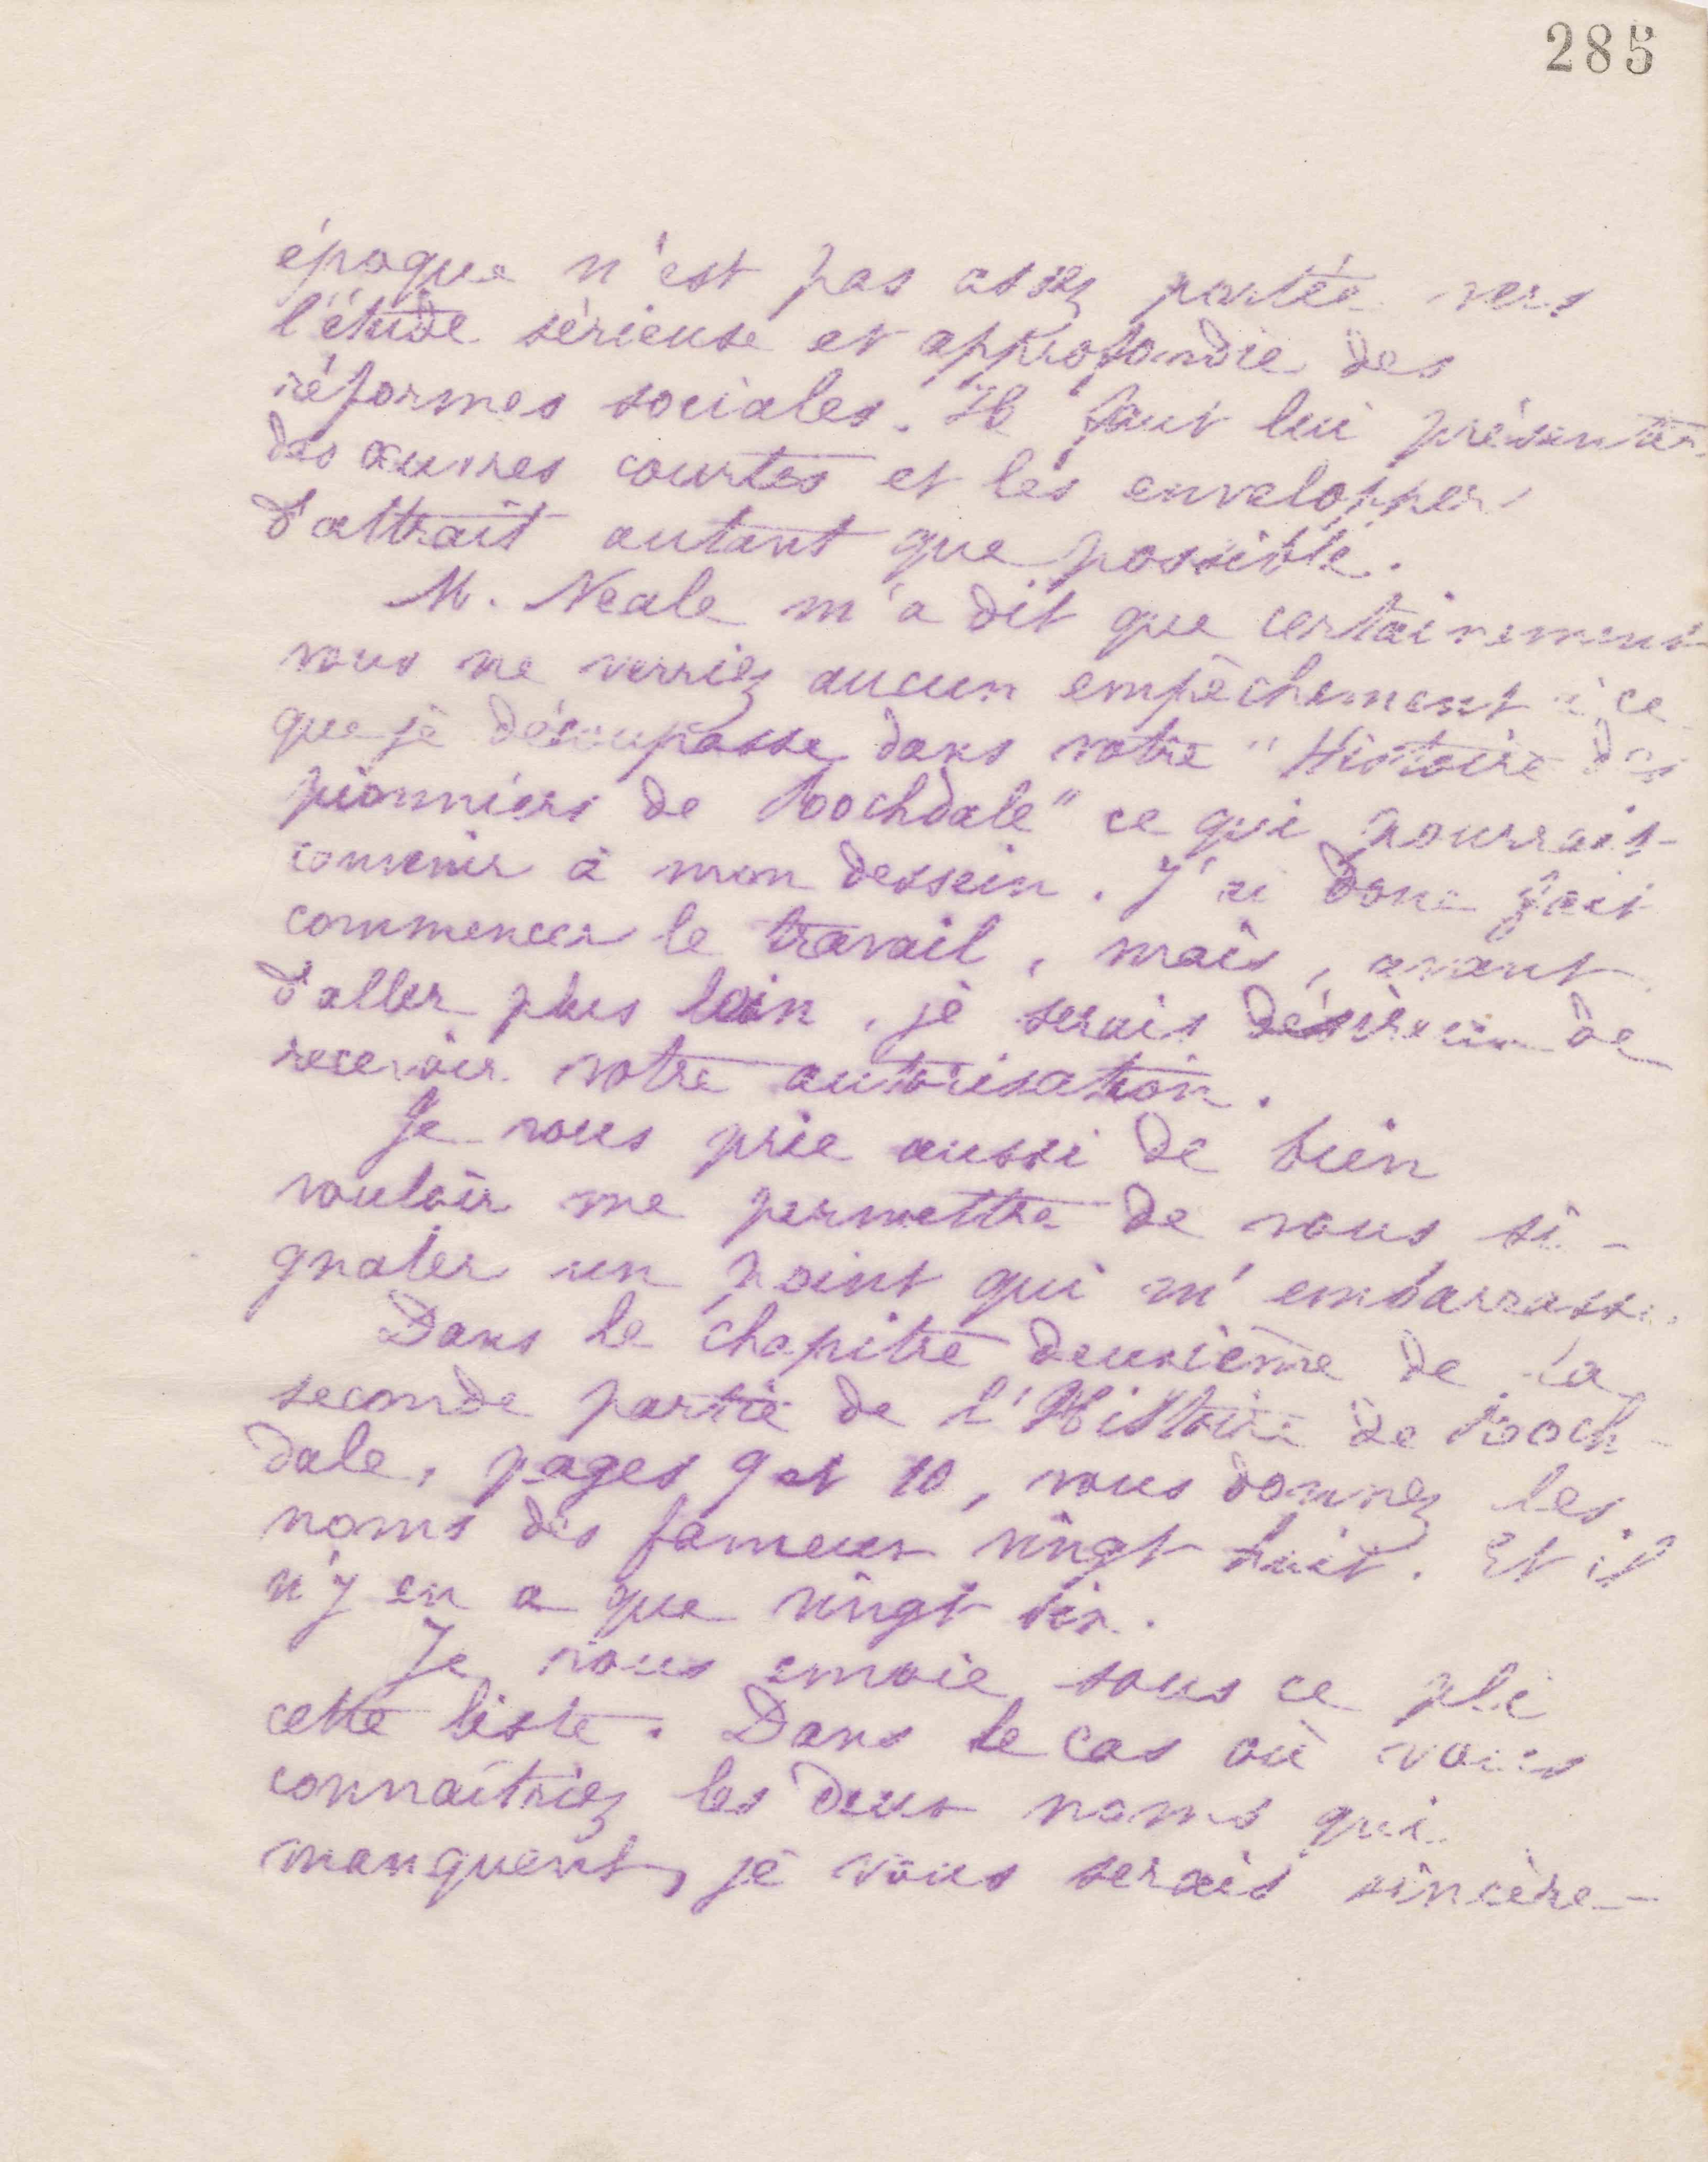 285
époque n'est pas assez portée vers
l'étude sérieuse et approfondie des
réformes sociales. Il faut lui présenter
des œuvres courtes et les envelopper
d'attrait autant que possible.
M. Neale m'a dit que certainement
vous ne verriez aucun empêchement à ce
que je découpasse dans votre "Histoire des
pionniers de Roochdale" ce qui pourrait
convenir à mon dessein. J'ai donc fait
commencer le travail, mais, avant
d'aller plus loin, je serais désireux de
recevoir votre autorisation.
Je vous prie aussi de bien
vouloir me permettre de vous si-
gnaler un point qui m'embarrasse.
Dans le chapitre deuxième de la
seconde partie de l'Histoire de Rooch-
dale, pages 9 et 10, vous donnez les
noms des fameux vingt huit. Et il
n'y en a que vingt six.
Je vous envoie sous ce pli
cette liste. Dans le cas où vous
connaîtriez les deux noms qui
manquent, je vous serais sincère-